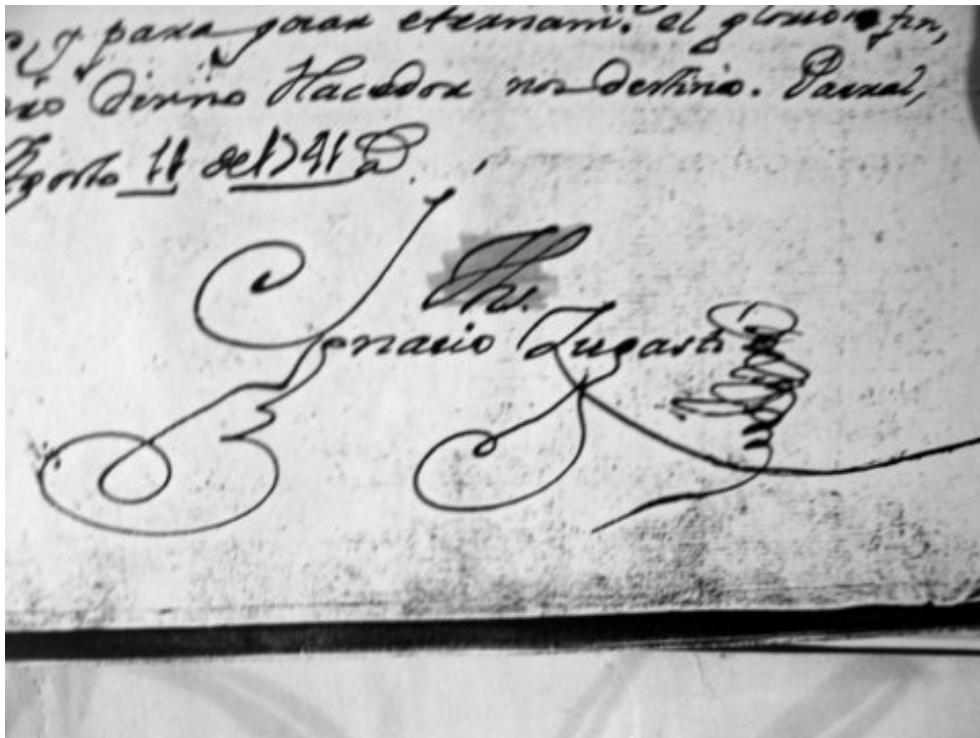 y para gozar eternam.te el glorioso fin,
Divino Hacedor nos destino. Parral,
Agosto 11 de 1741 a.
Jhs.
Ignacio Zugasti